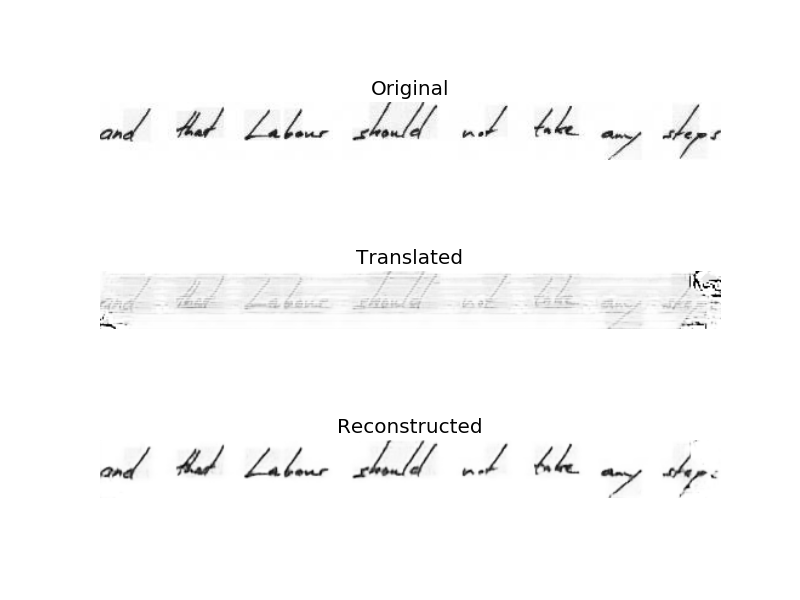 Original
and that Labour should not take any steps
Translated
and that Labour should not take any step
Reconstructed
and that Labour should not take any steps